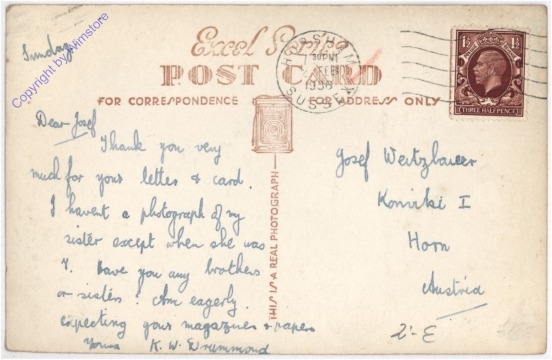 Sunday
Copyright by Aimstore
Excel Series
POST CARD
FOR CORRESPONDENCE
FOR ADDRESS ONLY
HORSHAM
FEB
1936
SUSSEX
1½ 1½
THREE HALFPENCE
Dear Josef
Thank you very
much for your letter & card.
I havent a photograph of my
sister except when she was
7. Have you any brothers
or sisters? Am eagerly
expecting your magazines & papers
Yours K. W. Drummond
THIS IS A REAL PHOTOGRAPH
Josef
I
Horn
Austria